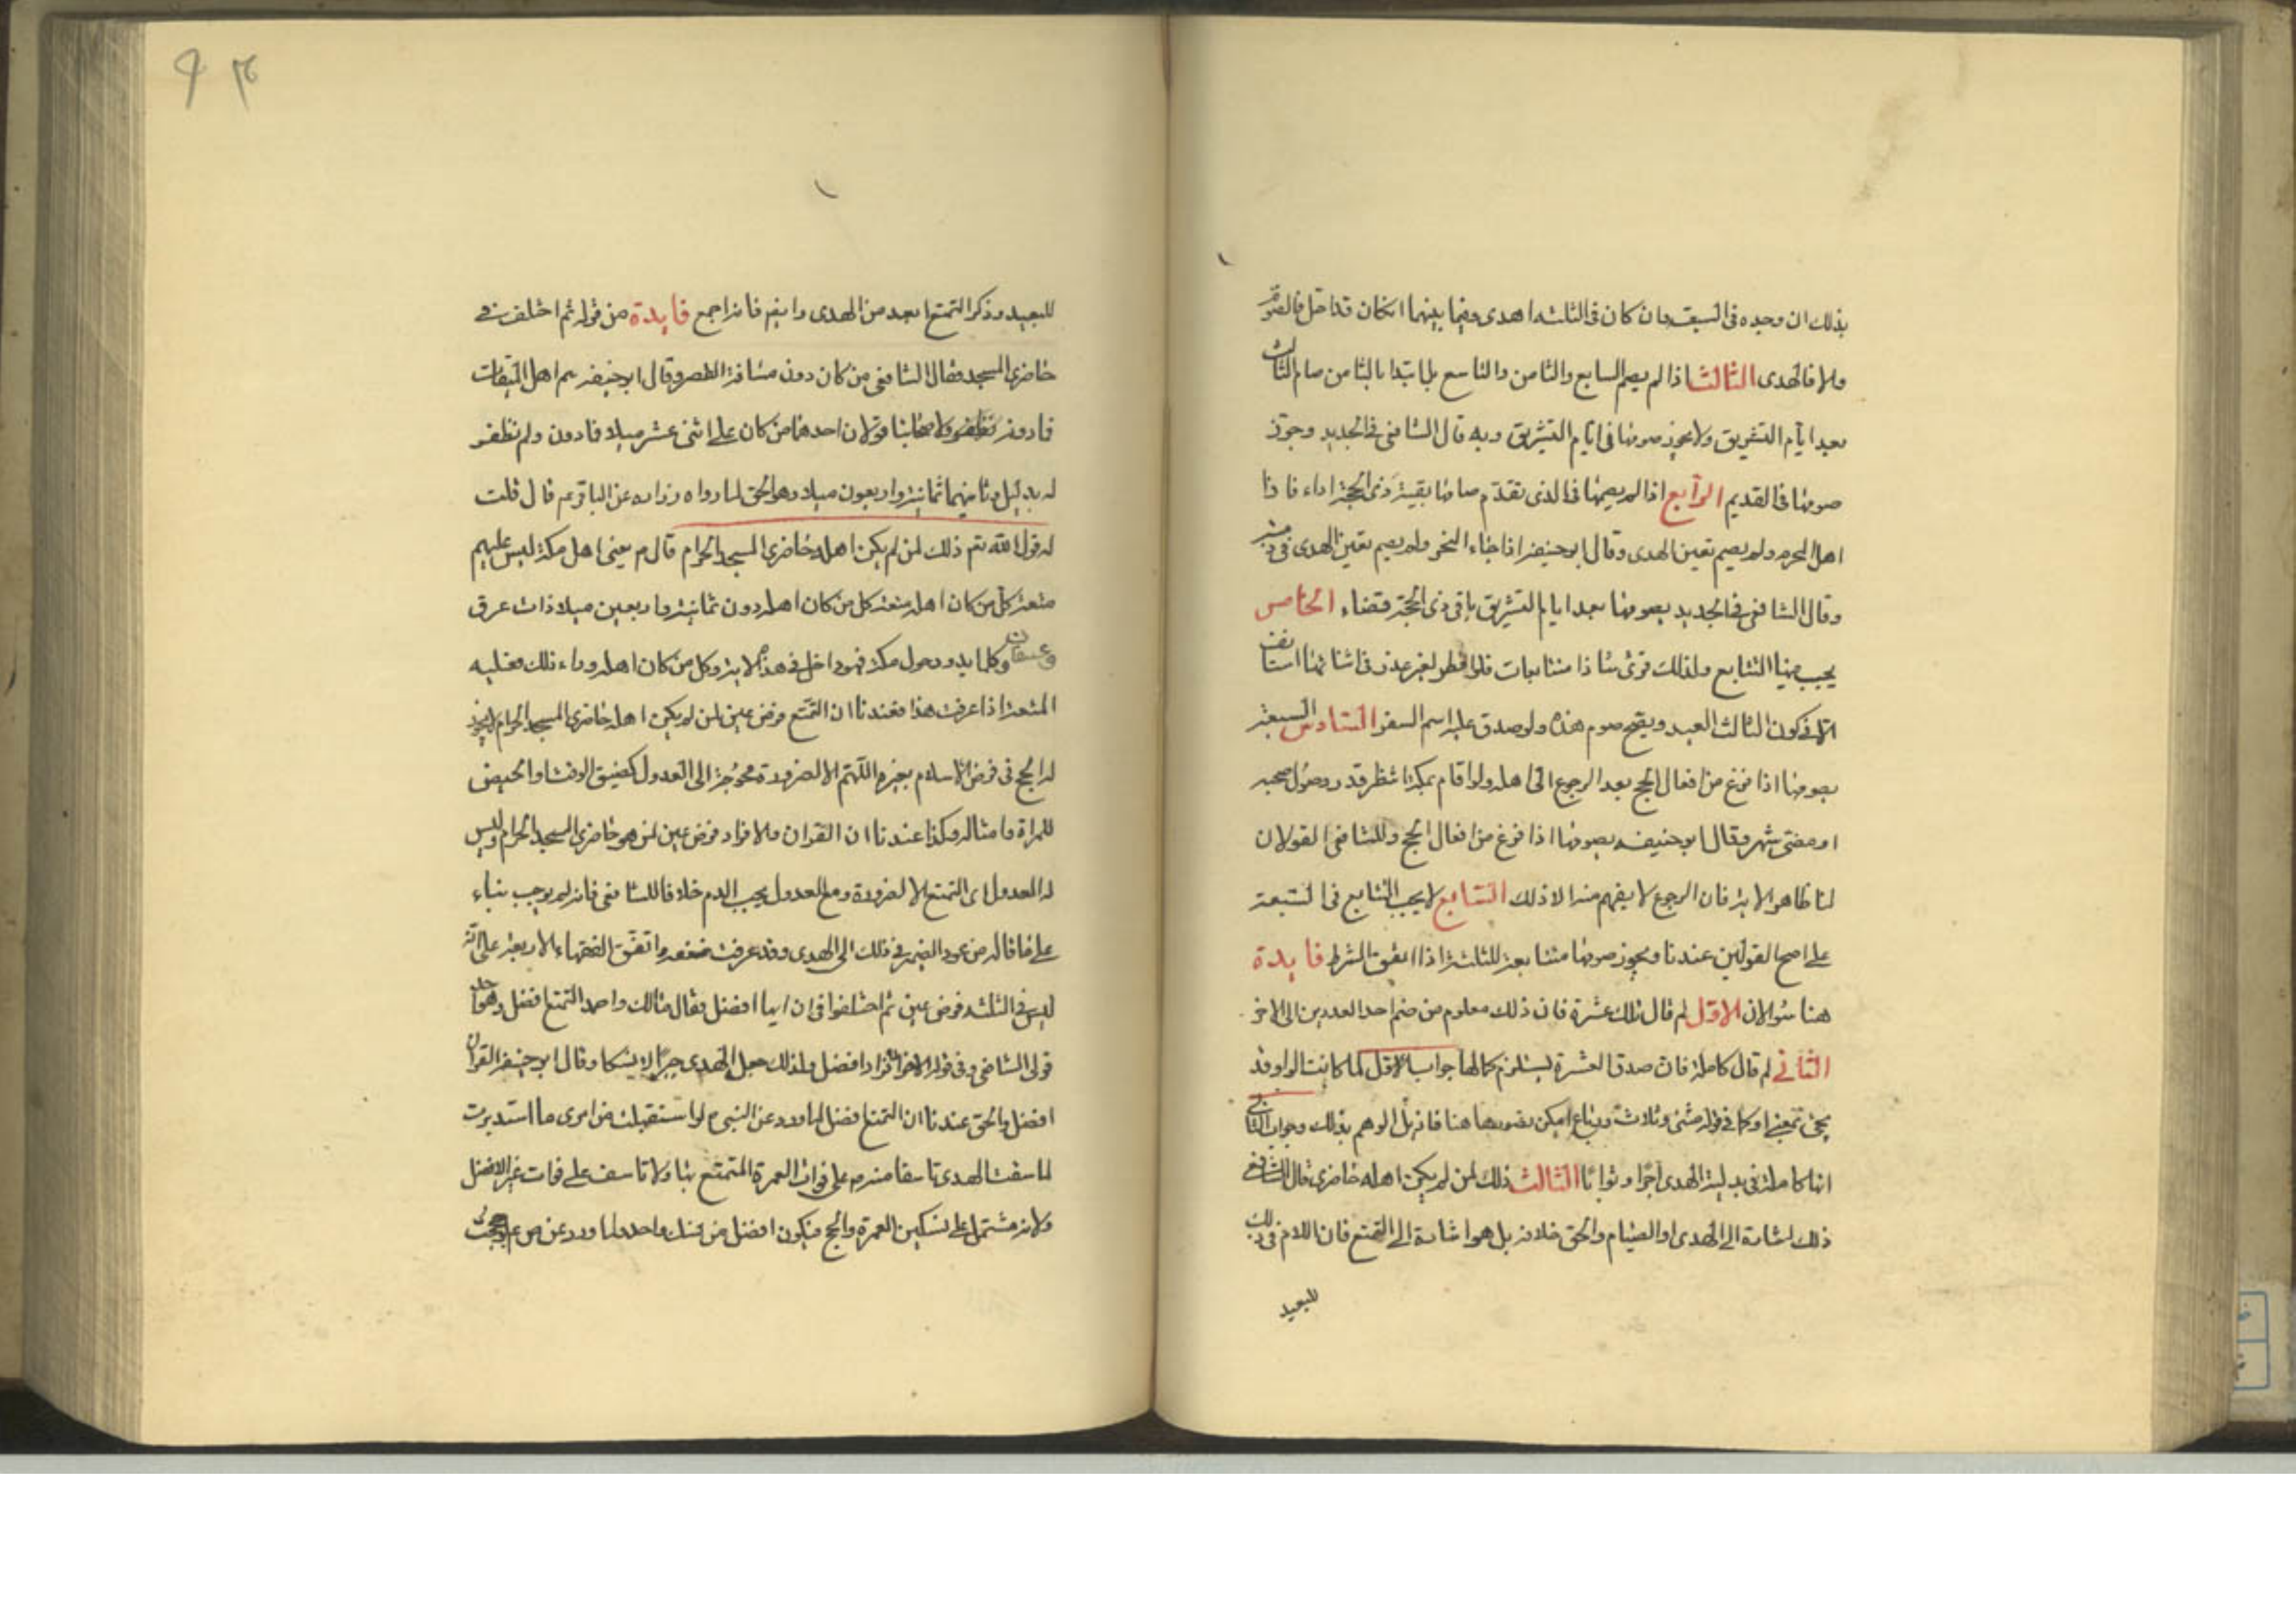 بذلك ان وجده فى السبعة وان كان فى الثلثه اهدى وفيما بينهما ان كان قد احل فالصوم
والا فالهدى الثالث اذا لم يصم السابع والثامن والتاسع بل ابتدا بالثامن صام الثالث
بعد ايام التشريق ولا يجوز صومها فى ايام التشريق وبه قال الشافعى فى الجديد وجوّز
صومها فى القديم الرابع اذا لم يصمها فى الذى تقدم صامها بقية ذى الحجة اداء فاذا
اهل المحرم ولم يصم تعين الهدى وقال ابو حنيفة اذا جاء النحر ولم يصم تعين الهدى فى ذمته
وقال الشافعى فى الجديد يصومها بعد ايام التشريق باقى ذى الحجة قضاء الخامس
يجب فيها التتابع ولذلك قرئ شاذا متتابعات فلو افطر لغير عذر فى اثنائها استانف
الا فى كون الثالث العيد ويصح صوم هذه ولو صدق عليه اسم السفر السادس السبعة
يصومها اذا فرغ من افعال الحج بعد الرجوع الى اهله ولو اقام بمكة انتظر قدر وصول صحبه
او مضى شهر وقال ابو حنيفه يصومها اذا فرغ من افعال الحج وللشافعى القولان
لنا ظاهر الاية فان الرجوع لا يفهم منه الا ذلك السابع لا يجب التتابع فى السبعة
على اصح القولين عندنا ويجوز صومها متتابعة للثلثة اذا اتفق الشرط فايدة
هنا سؤالان الاول لم قال تلك عشرة فان ذلك معلوم من ضم احد العددين الى الاخر
الثانى لم قال كاملة فان صدق العشرة يستلزم كمالها جواب الاول لما كانت الواو قد
يجئ بمعنى او كما فى قوله مثنى وثلاث ورباع امكن تصورها هنا فازيل الوهم بذلك وجواب الثانى
انها كاملة فى بدلية الهدى اجرا وثوابا الثالث ذلك لمن لم يكن اهله حاضرى قال الشافعى
ذلك اشارة الى الهدى او الصيام والحق خلافه بل هو اشارة الى التمتع فان اللام فى ذلك
للبعيد
٩٣
للبعيد وذكر التمتع ابعد من الهدى وايضا فانه اجمع فايدة من قوله ثم اختلف فى
حاضرى المسجد فقال الشافعى من كان دون مسافة القصر وقال ابو حنيفه هم اهل الميقات
فما دونه ولاصحابنا قولان احدهما من كان على اثنى عشر ميلا فما دون ولم نظفر
له بدليل وثانيهما ثمانية واربعون ميلا وهو الحق لما رواه زراره عن الباقر ع قال قلت
له قول الله تع ذلك لمن لم يكن اهله حاضرى المسجد الحرام قال م يعنى اهل مكة ليس عليهم
متعة كل من كان اهله متعة كل من كان اهله دون ثمانية واربعين ميلا ذات عرق
وعسفان وكلما يدور حول مكة فهو داخل فى هذه الاية وكل من كان اهله وراء ذلك فعليه
المتعة اذا عرفت هذا فعندنا ان التمتع فرض عين لمن لم يكن اهله حاضرى المسجد الحرام لا يجوز
له الحج فى فرض الاسلام بغيره اللهم الا لضرورة محوجة الى العدول كضيق الوقت او الحيض
للمراة وامثاله وكذا عندنا ان القران والافراد فرض عين لمن هو حاضرى المسجد الحرام وليس
له العدول اى التمتع الا لضرورة ومع العدول يجب الدم خلافا للشافعى فانه لم يوجب بناء
على ما قاله من عود الضمير فى ذلك الى الهدى وقد عرفت ضعفه واتفق الفقهاء الاربعة على انه
ليس فى الثلثه فرض عين ثم اختلفوا فى ان ايها افضل فقال مالك واحمد التمتع افضل وهو احد
قولى الشافعى وفى قوله الاخر الافراد افضل ولذلك جعل الهدى جبرا لا نسكا وقال ابو حنيفة القران
افضل والحق عندنا ان التمتع افضل لما ورد عن النبى م لو استقبلت من امرى ما استدبرت
لما سقت الهدى تاسفا منه م على فوات العمرة المتمتع بها ولا تاسف على فوات غير الافضل
ولانه مشتمل على نسكين العمرة والحج فيكون افضل من نسك واحد ولما ورد عن ص ع لو حججت